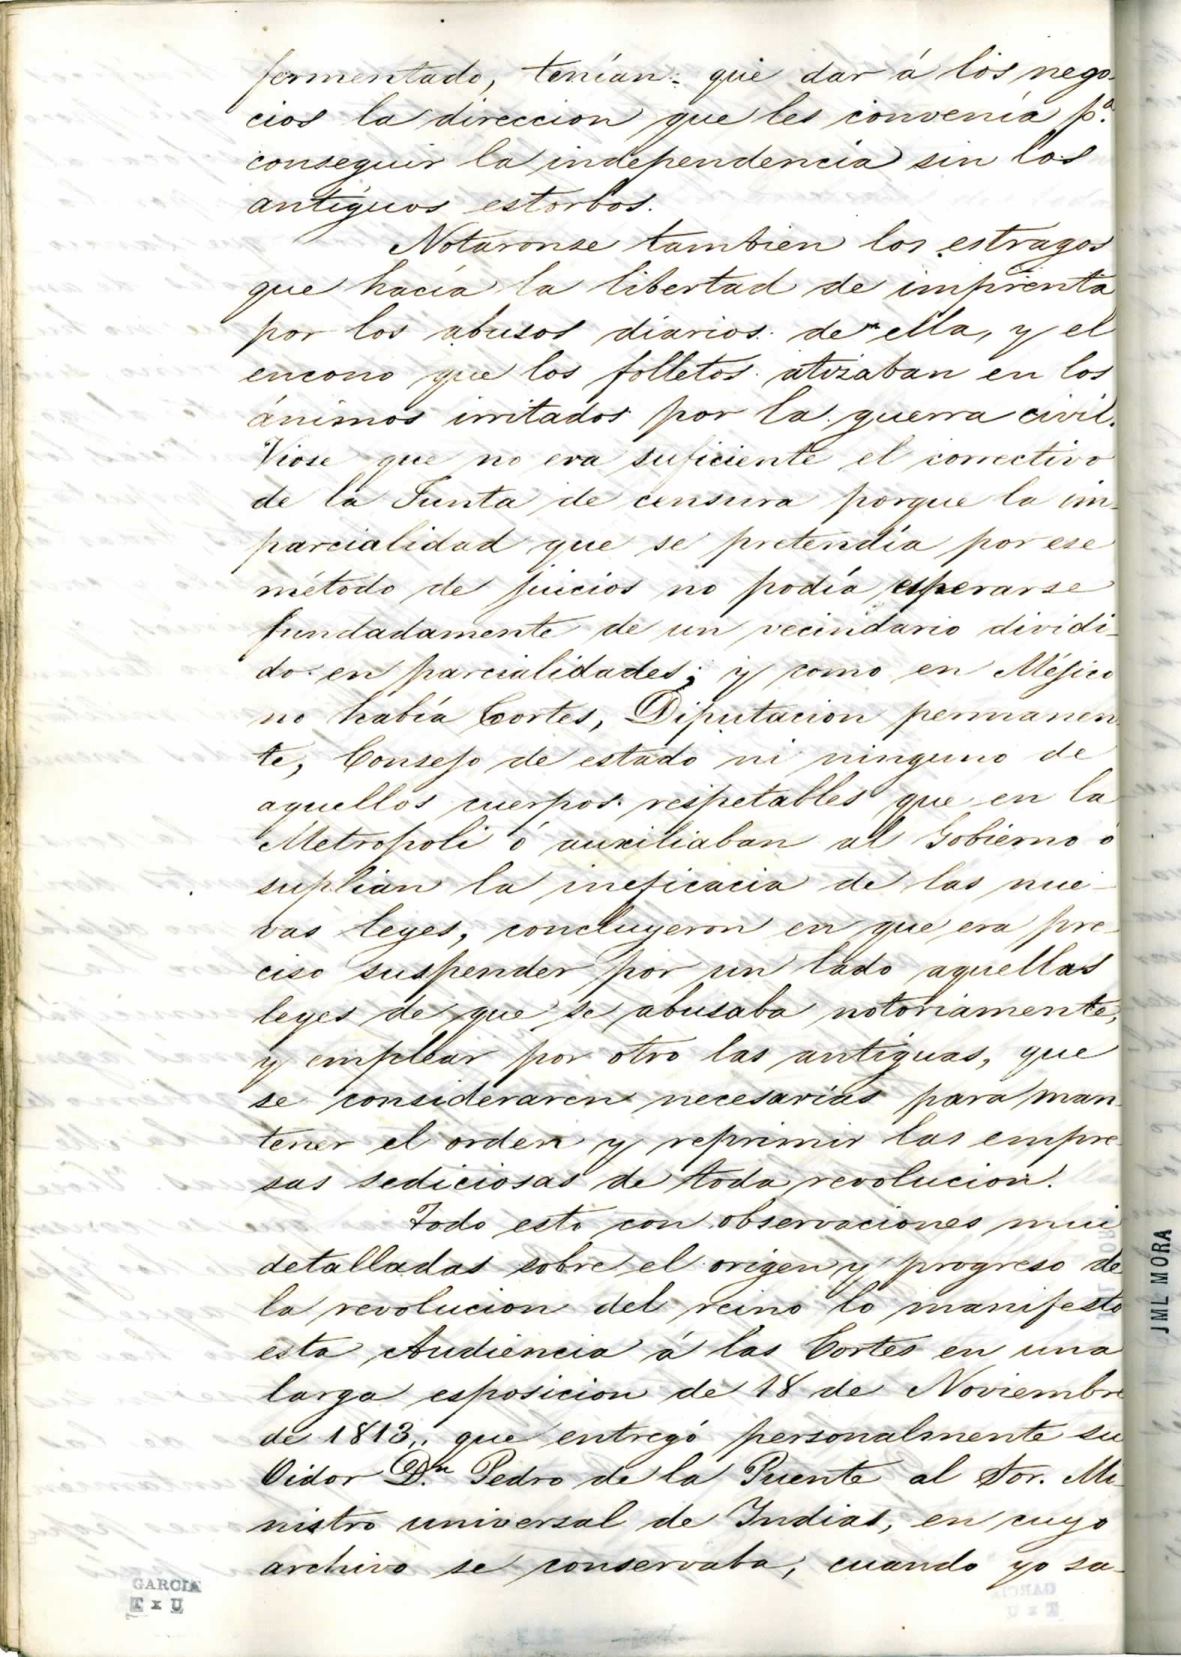 fermentado, tenían que dar á los nego-
cios la direccion que les convenía p.ª
conseguir la independencia sin los
antiguos estorbos.
Notaronse tambien los estragos
que hacía la libertad de imprenta
por los abusos diarios de ella, y el
encono que los folletos atizaban en los
ánimos irritados por la guerra civil.
Viose que no era suficiente el correctivo
de la Junta de censura porque la im-
parcialidad que se pretendía por ese
método de juicios no podía esperarse
fundadamente de un vecindario dividi-
do en parcialidades; y como en Méjico
no había Cortes, Diputacion permanen-
te, Consejo de estado ni ninguno de
aquellos cuerpos respetables que en la
Metropoli ó auxiliaban al Gobierno ó
suplian la ineficacia de las nue-
vas leyes, concluyeron en que era pre-
ciso suspender por un lado aquellas
leyes de que se abusaba notoriamente,
y emplear por otro las antiguas, que
se consideraren necesarias para man-
tener el orden y reprimir las empre-
sas sediciosas de toda revolucion.
Todo esto con observaciones mui
detalladas sobre el origen y progreso de
la revolucion del reino lo manifesto
esta Audiencia á las Cortes en una
larga esposicion de 18 de Noviembre
de 1813, que entregó personalmente su
Oidor D.n Pedro de la Puente al Sor. Mi-
nistro universal de Indias, en cuyo
archivo se conservaba, cuando yo sa-
GARCIA
T x U
JML MORA